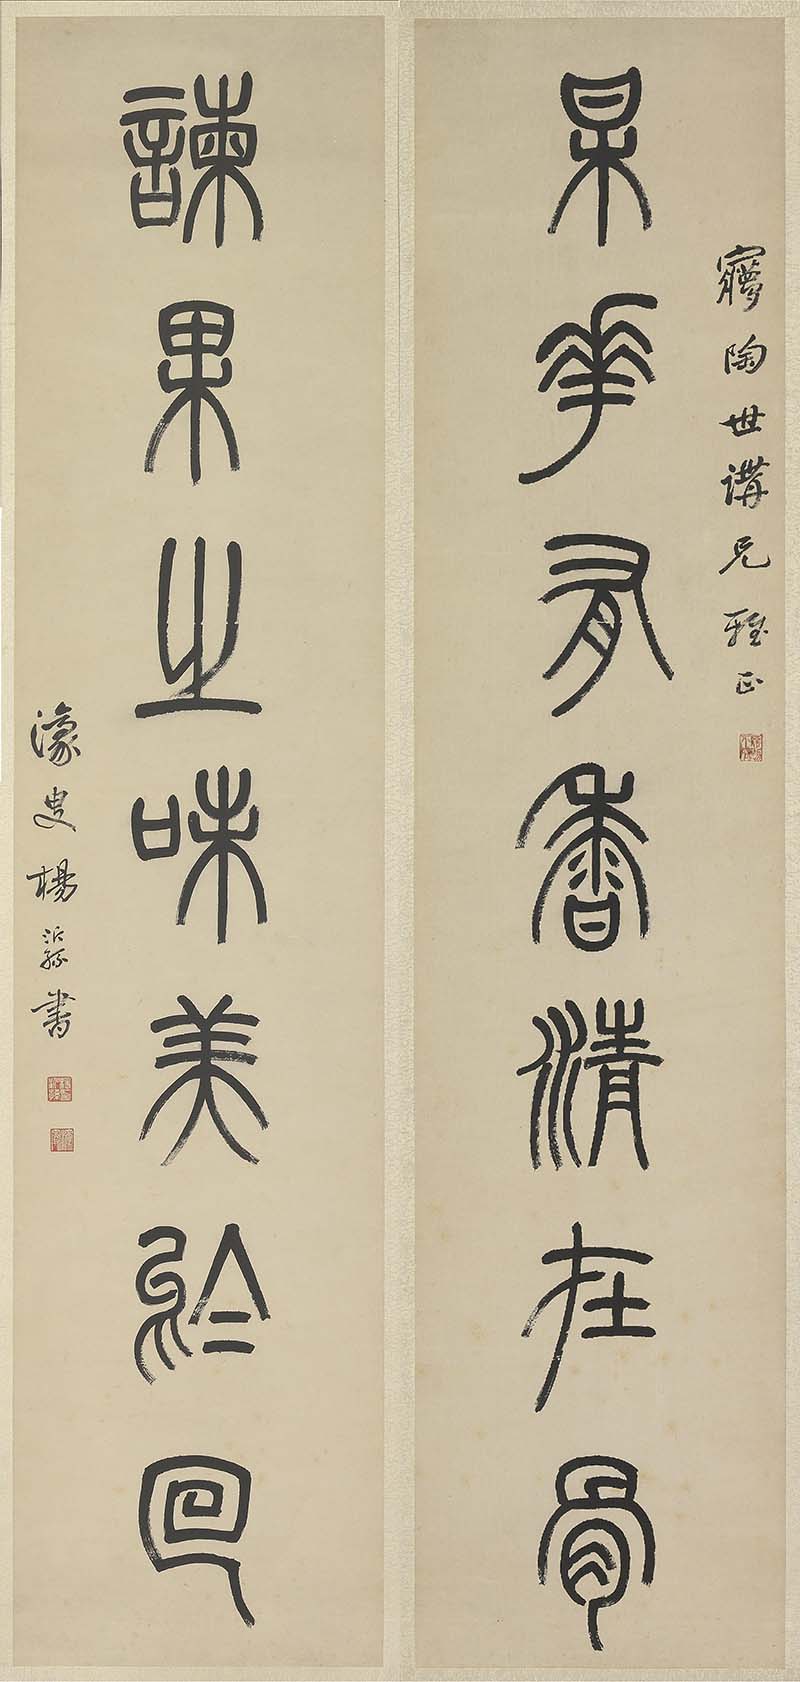 㝱陶世講兄雅正
某華有香清在骨
諫果之味美於回
濠叟楊沂孫書